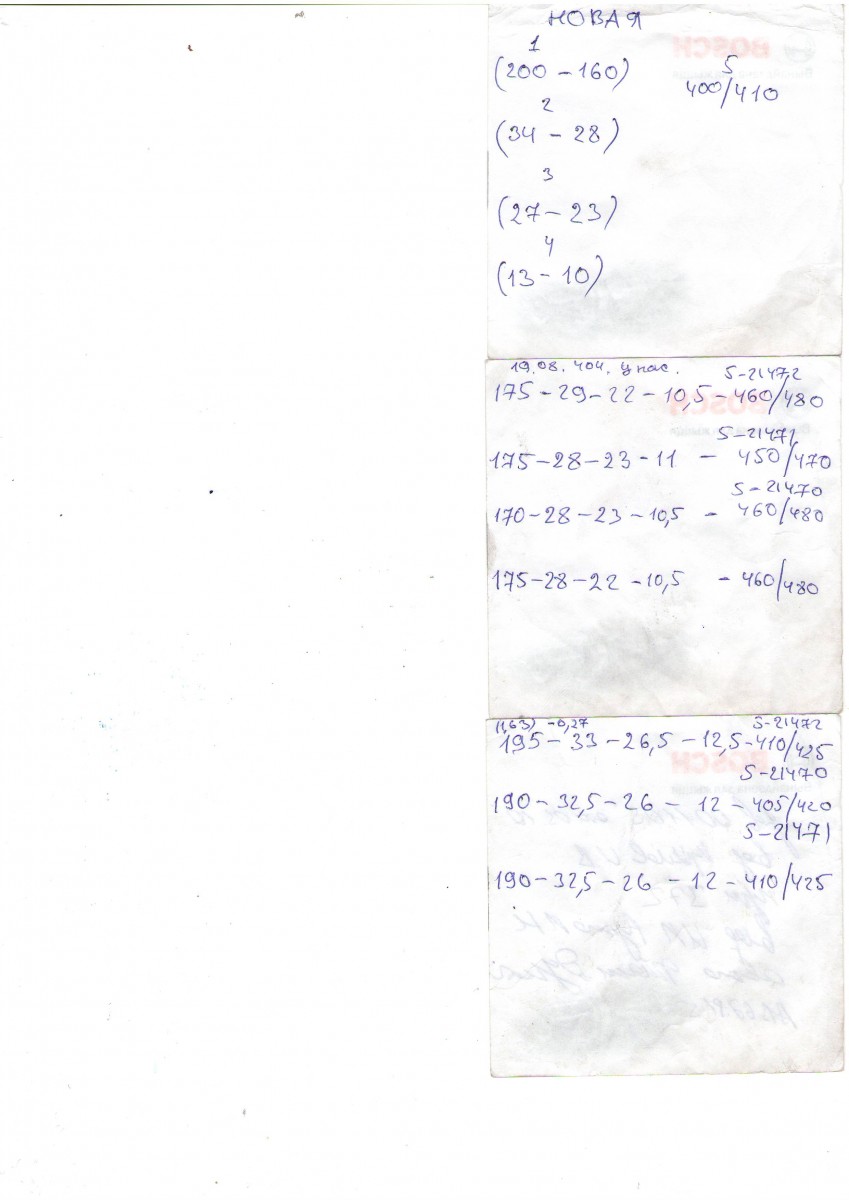 НОВАЯ
1
(200 - 160)
5
400/410
2
(34 - 28)
3
(27 - 23)
4
(13 - 10)
19.08. 404. у нас.
S-21472
175 - 29 - 22 - 10,5 - 460/480
S-21471
175 - 28 - 23 - 11 - 450/470
S-21470
170 - 28 - 23 - 10,5 - 460/480
175 - 28 - 22 - 10,5 - 460/480
(1,63) -0,27
S-21472
195 - 33 - 26,5 - 12,5 - 410/425
S-21470
190 - 32,5 - 26 - 12 - 405/420
S-21471
190 - 32,5 - 26 - 12 - 410/425
BOSCH
BOSCH
BOSCH